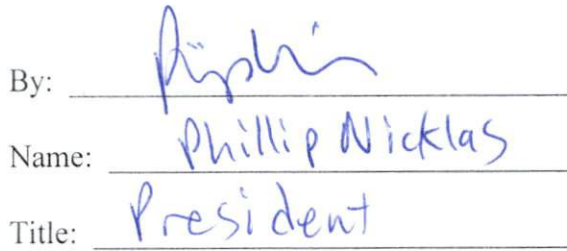 By:
Name: Phillip Nicklas
Title: President